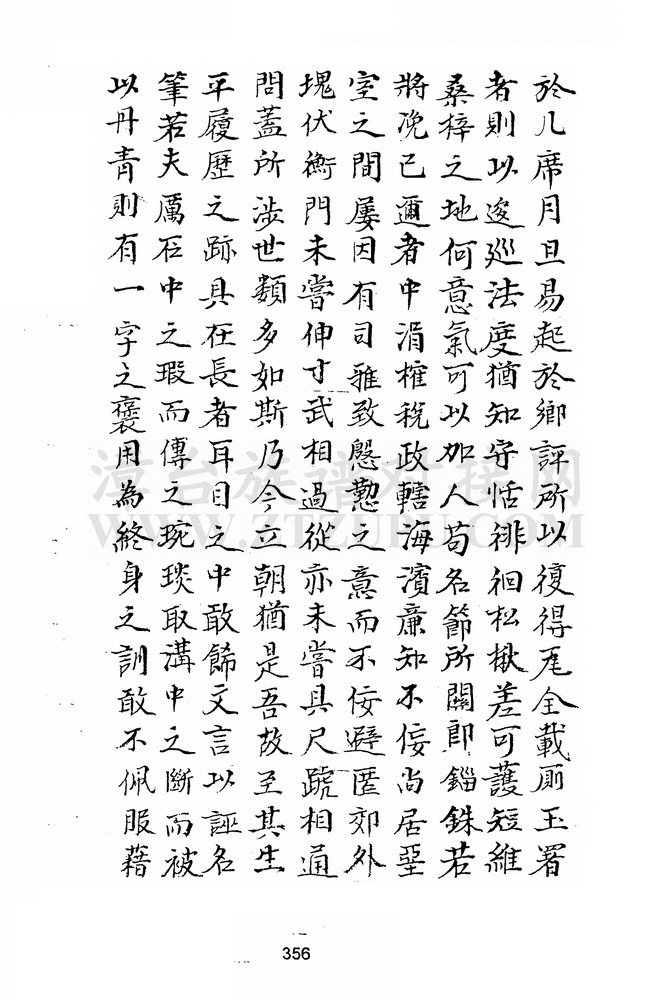 於几席月旦易起於鄉評所以復得瓦全載厠玉署
者則以逡巡法度猶知守恬徘徊松楸差可護短維
桑梓之地何意氣可以加人苟名節所關即錙銖若
將浼已邇者中涓榷稅政轄海濱廉知不佞尚居堊
室之間屢因有司雅致慇懃之意而不佞避匿郊外
塊伏衡門未嘗伸寸武相過從亦未嘗具尺蹏相通
問蓋所涉世類多如斯乃今立朝猶是吾故至其生
平履歷之跡具在長者耳目之中敢餙文言以誣名
筆若夫厲石中之瑕而傳之琬琰取溝中之斷而被
以丹青則有一字之褒用為終身之訓敢不佩服藉
漳台族譜对接网
WWW.ZTZUPU.COM
356